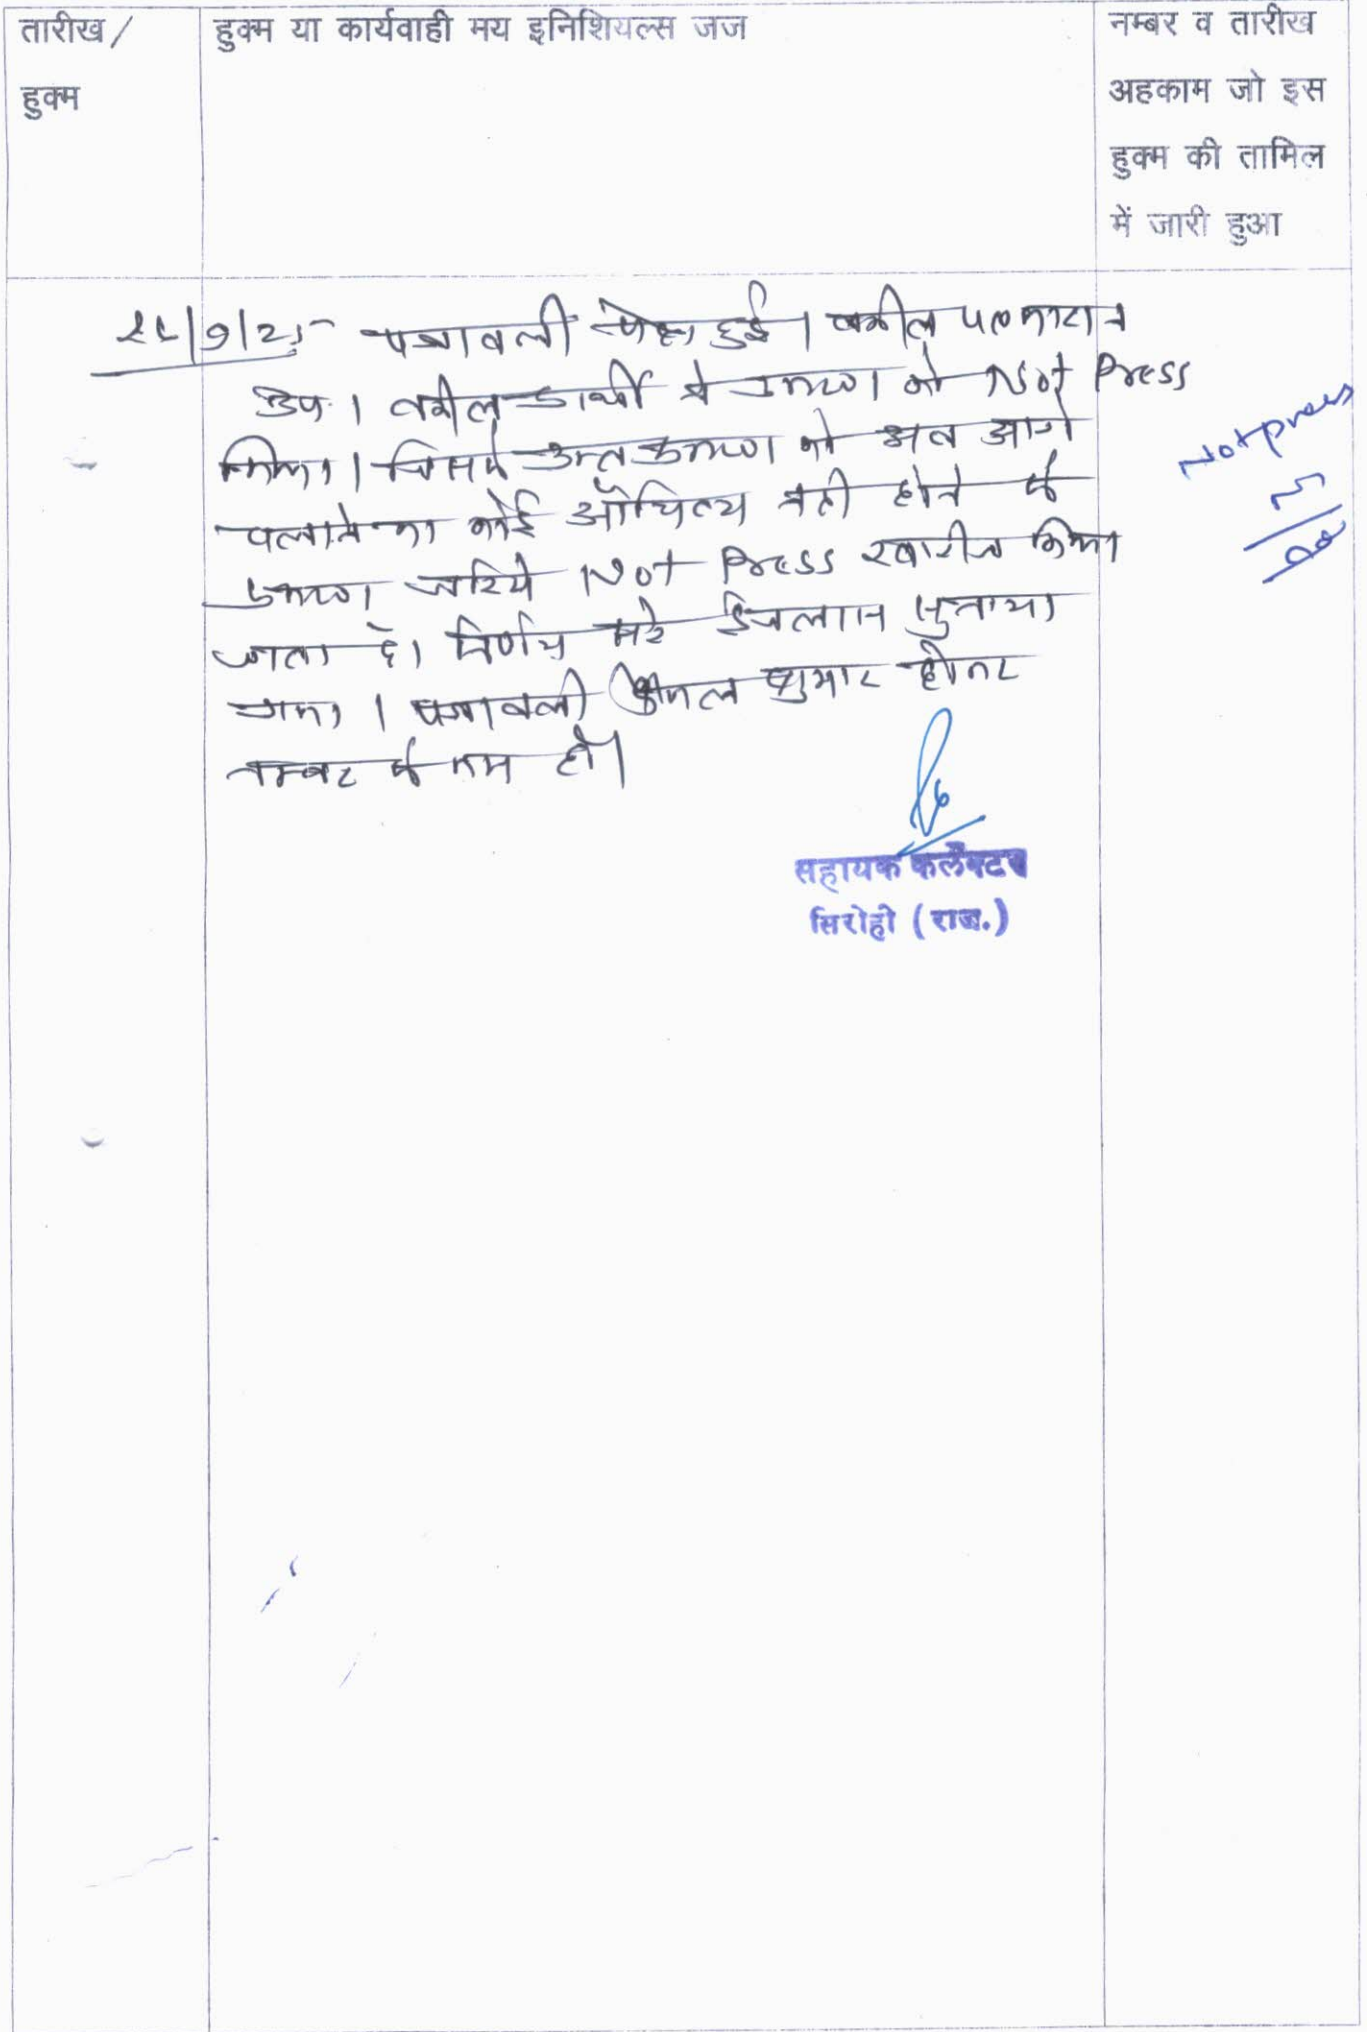 तारीख/
हुक्म
हुक्म या कार्यवाही मय इनिशियल्स जज
नम्बर व तारीख
अहकाम जो इस
हुक्म की तामिल
में जारी हुआ
पत्रावली पेश हुई। वकील पक्षकारान
उप.। वकील प्रार्थी ने प्रकरण को Not Press
किया। जिससे उक्त प्रकरण को अब आगे
चलाने का कोई औचित्य नही होने से
प्रकरण जरिये Not Press खारीज किया
जाता है। निर्णय सरे ईजलास सुनाया
गया। पत्रावली फैसल शुमार होकर
नम्बर से कम हो।
Not press
सहायक कलैक्टर
सिरोही (राज.)